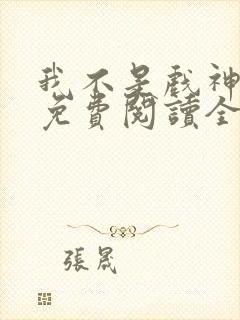 我不是戲神
免費閱讀全
張晟